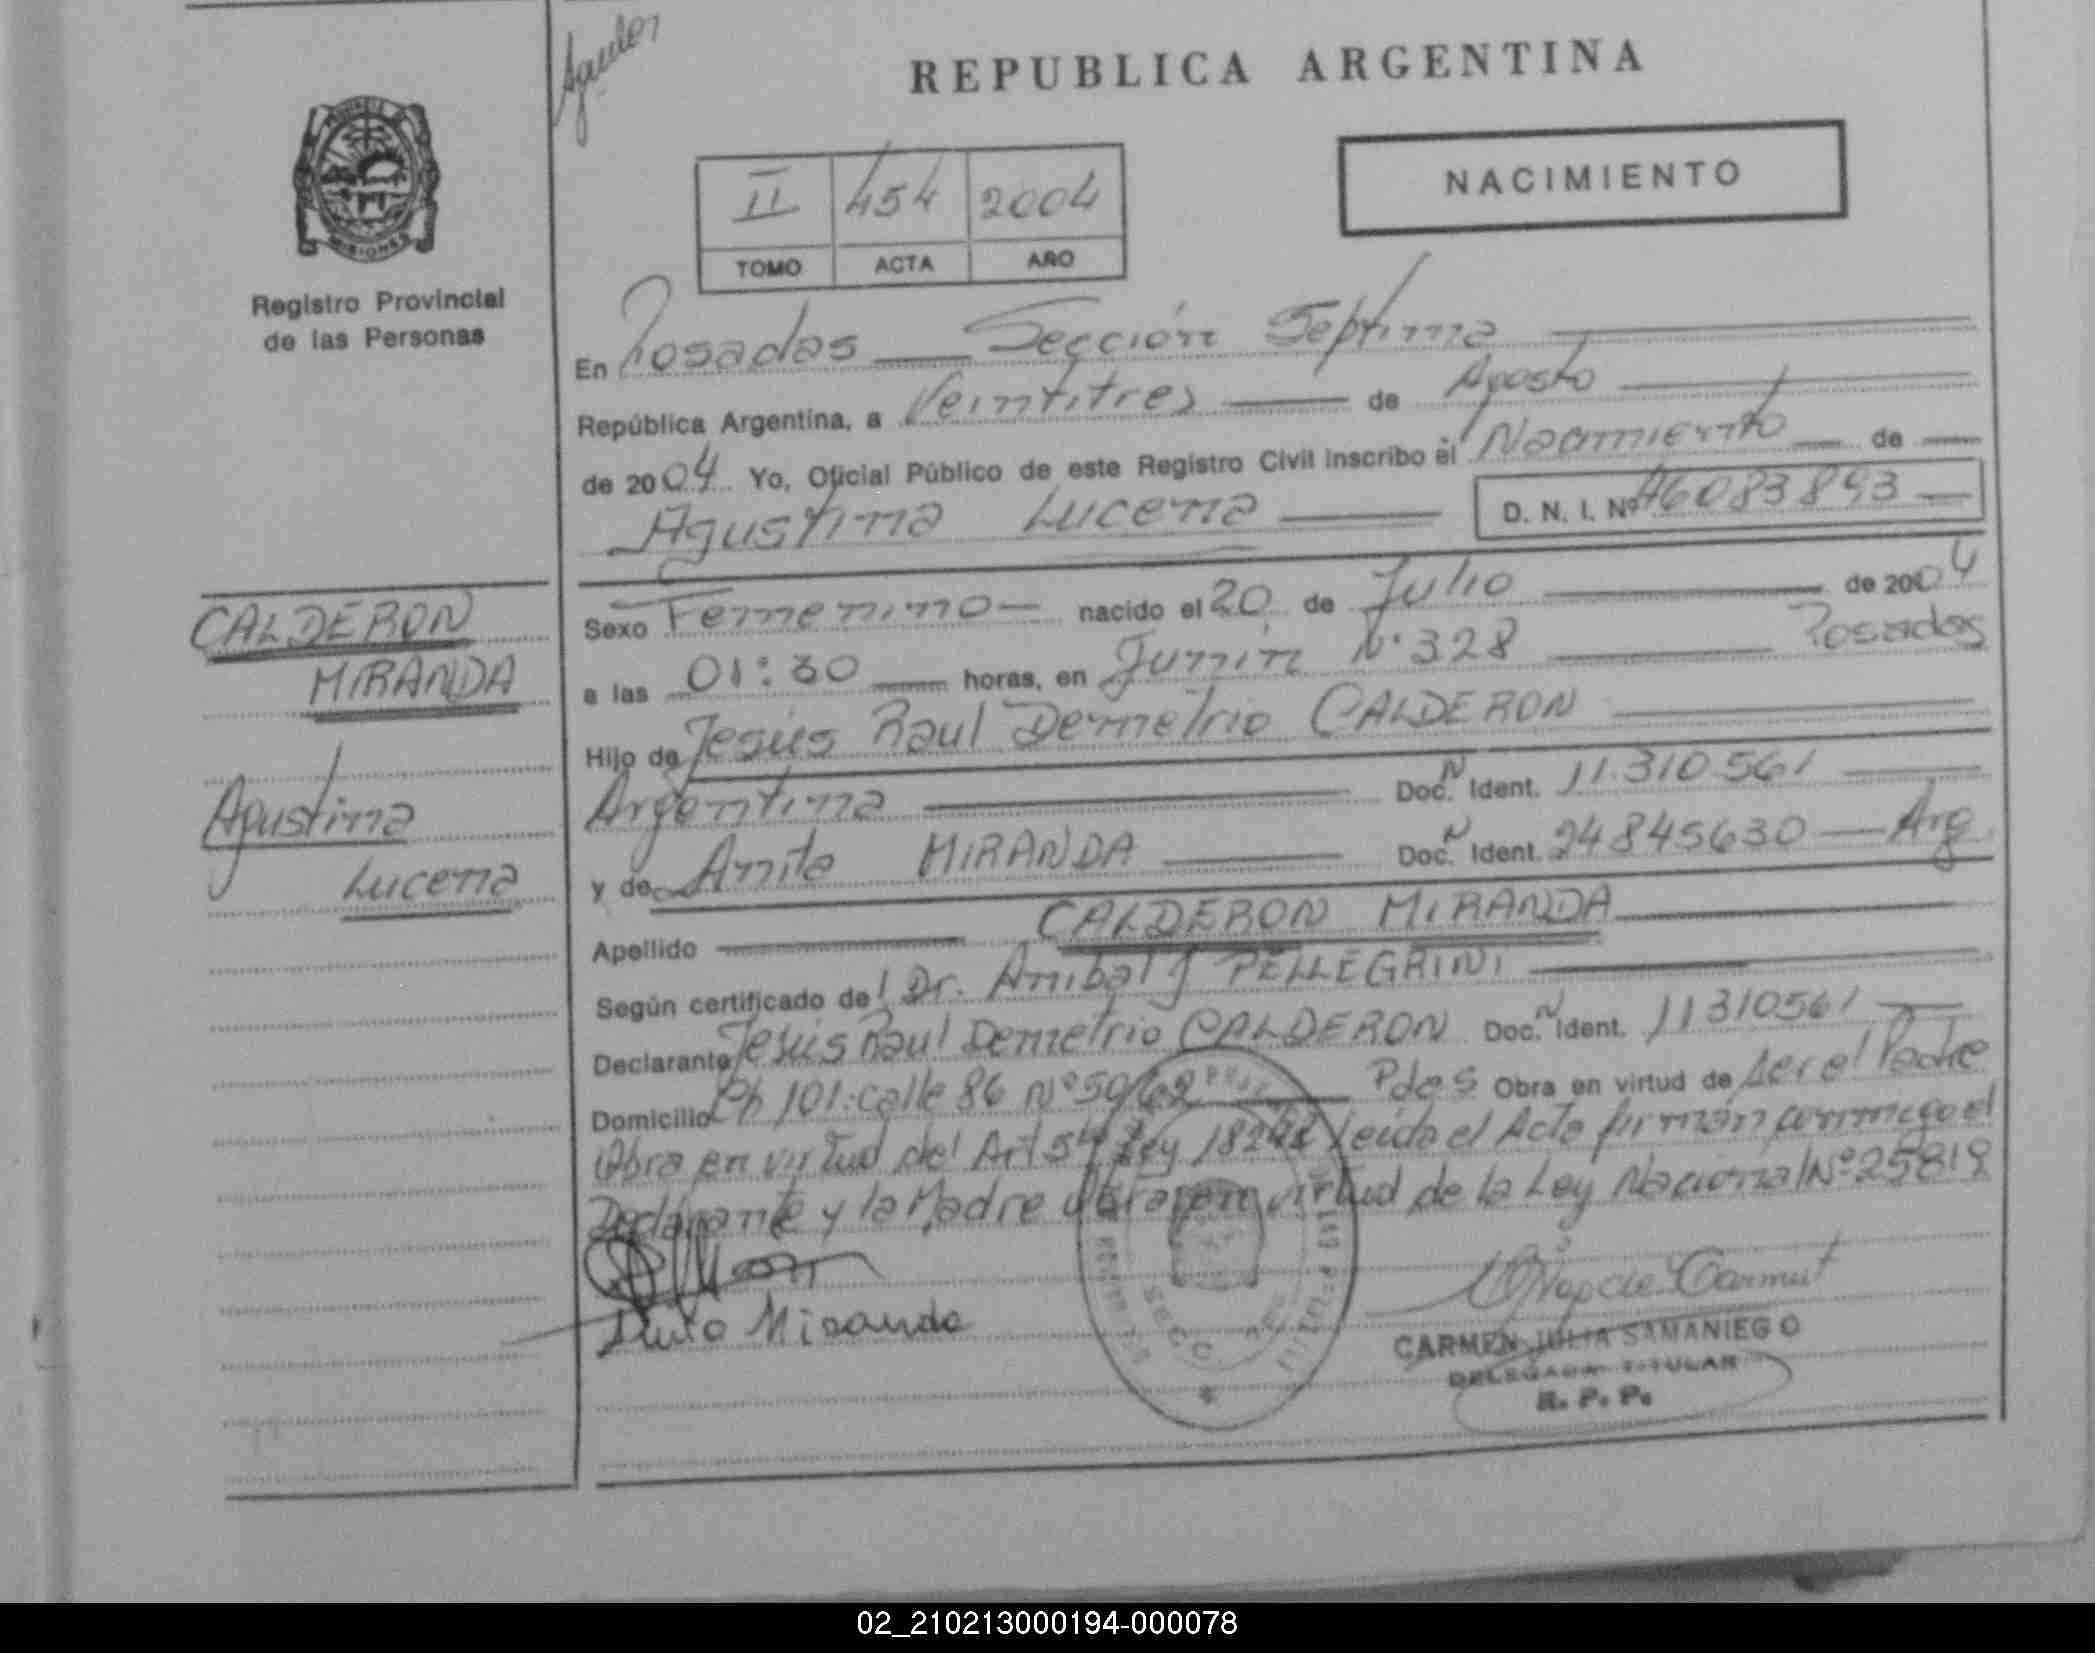 REPUBLICA ARGENTINA
NACIMIENTO
II 454 2004
TOMO ACTA AÑO
PROVINCIA DE MISIONES
Registro Provincial
de las Personas
En Posadas Sección Septima
República Argentina, a Veintitres de Agosto
de 2004 Yo, Oficial Público de este Registro Civil inscribo el Nacimiento de
Agustina Lucena D. N. I. Nº 46083893
CALDERON
MIRANDA
Agustina
Lucena
Sexo Femenino nacido el 20 de Julio de 2004
a las 01:30 horas, en Junin Nº 328 Posadas
Hijo de Jesús Raul Demetrio CALDERON
Argentina Doc. N Ident. 11.310.561
y de Anita MIRANDA Doc. N Ident. 24845630 Arg
Apellido CALDERON MIRANDA
Según certificado del Dr. Anibal J PELLEGRINI
Declarante Jesús Raul Demetrio CALDERON Doc. N Ident. 11310561
Domicilio Ch 101: calle 86 Nº Pdas Obra en virtud de ser el Padre
Obra en virtud del Art 5º Ley 18248 Leída el Acta firman conmigo el
Declarante y la Madre Obra en virtud de la Ley Nacional Nº 25819
Miranda
CARMEN JULIA SAMANIEGO
DELEGADA TITULAR
R. P. P.
02_210213000194-000078